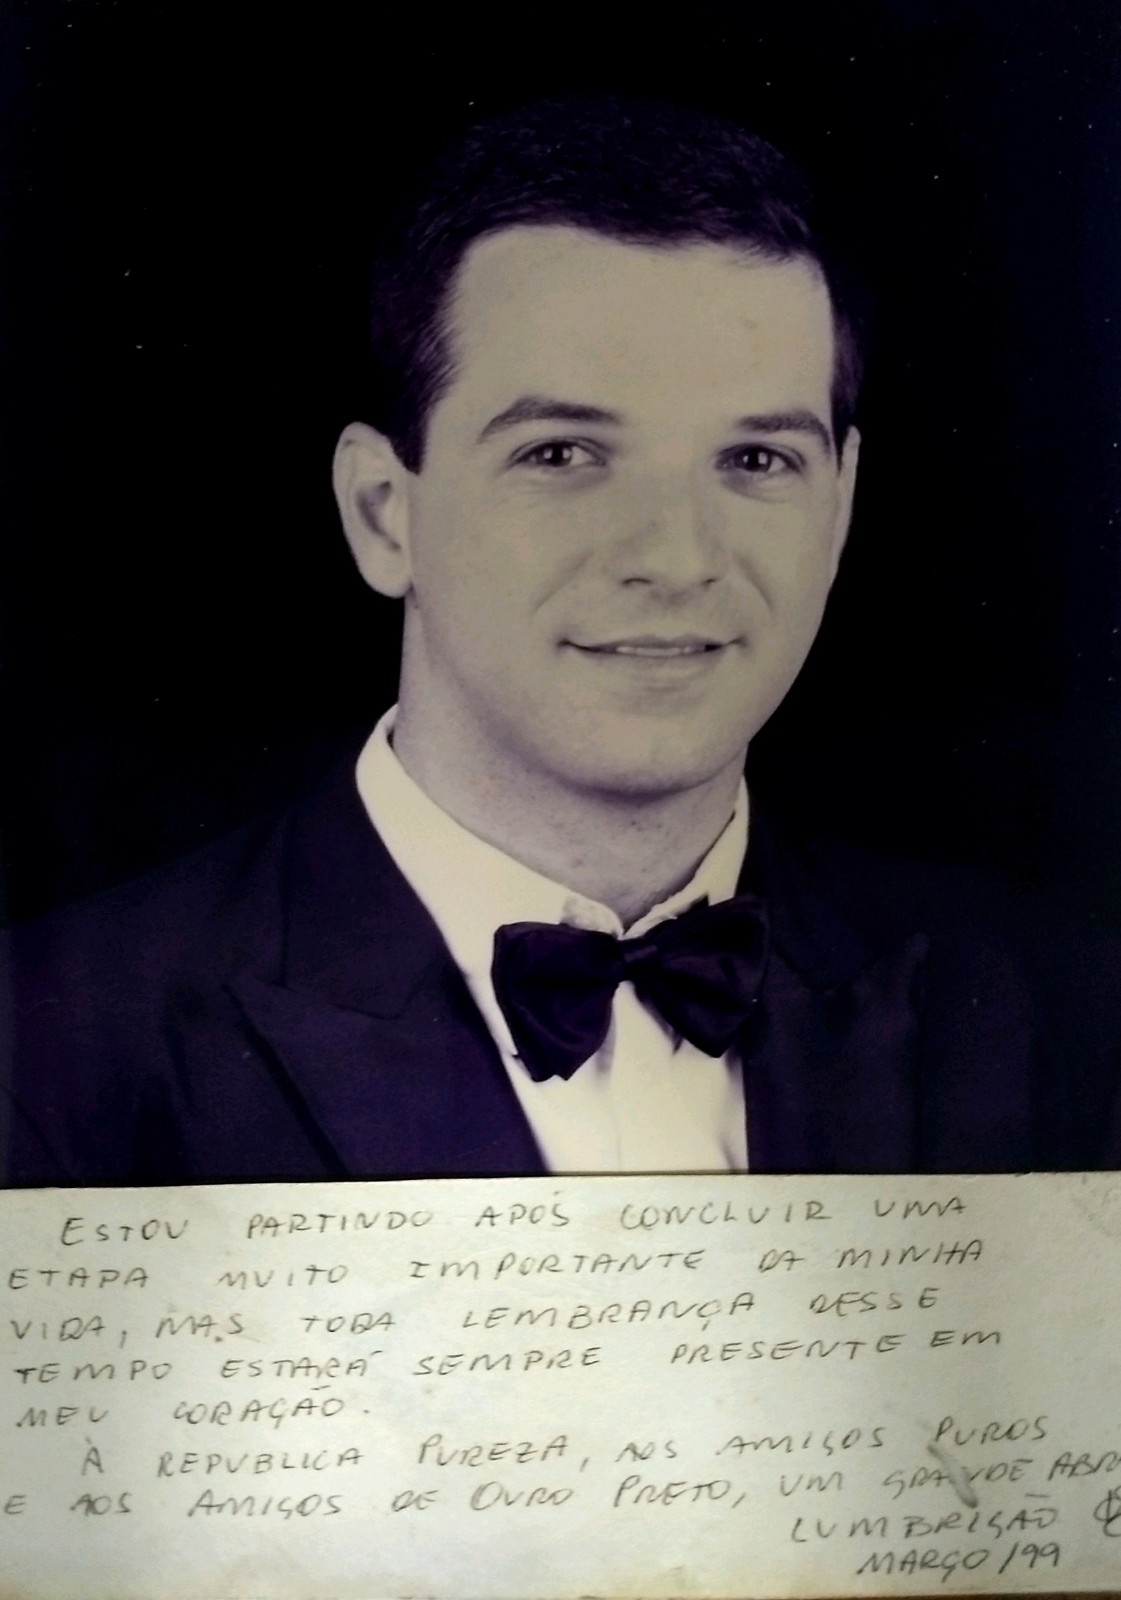 ESTOU PARTINDO APÓS CONCLUIR UMA
ETAPA MUITO IMPORTANTE DA MINHA
VIDA, MAS TODA LEMBRANÇA DESSE
TEMPO ESTARÁ SEMPRE PRESENTE EM
MEU CORAÇÃO.
À REPUBLICA PUREZA, AOS AMIGOS PUROS
E AOS AMIGOS DE OURO PRETO, UM GRANDE ABR
LUMBRIGÃO
MARÇO/99